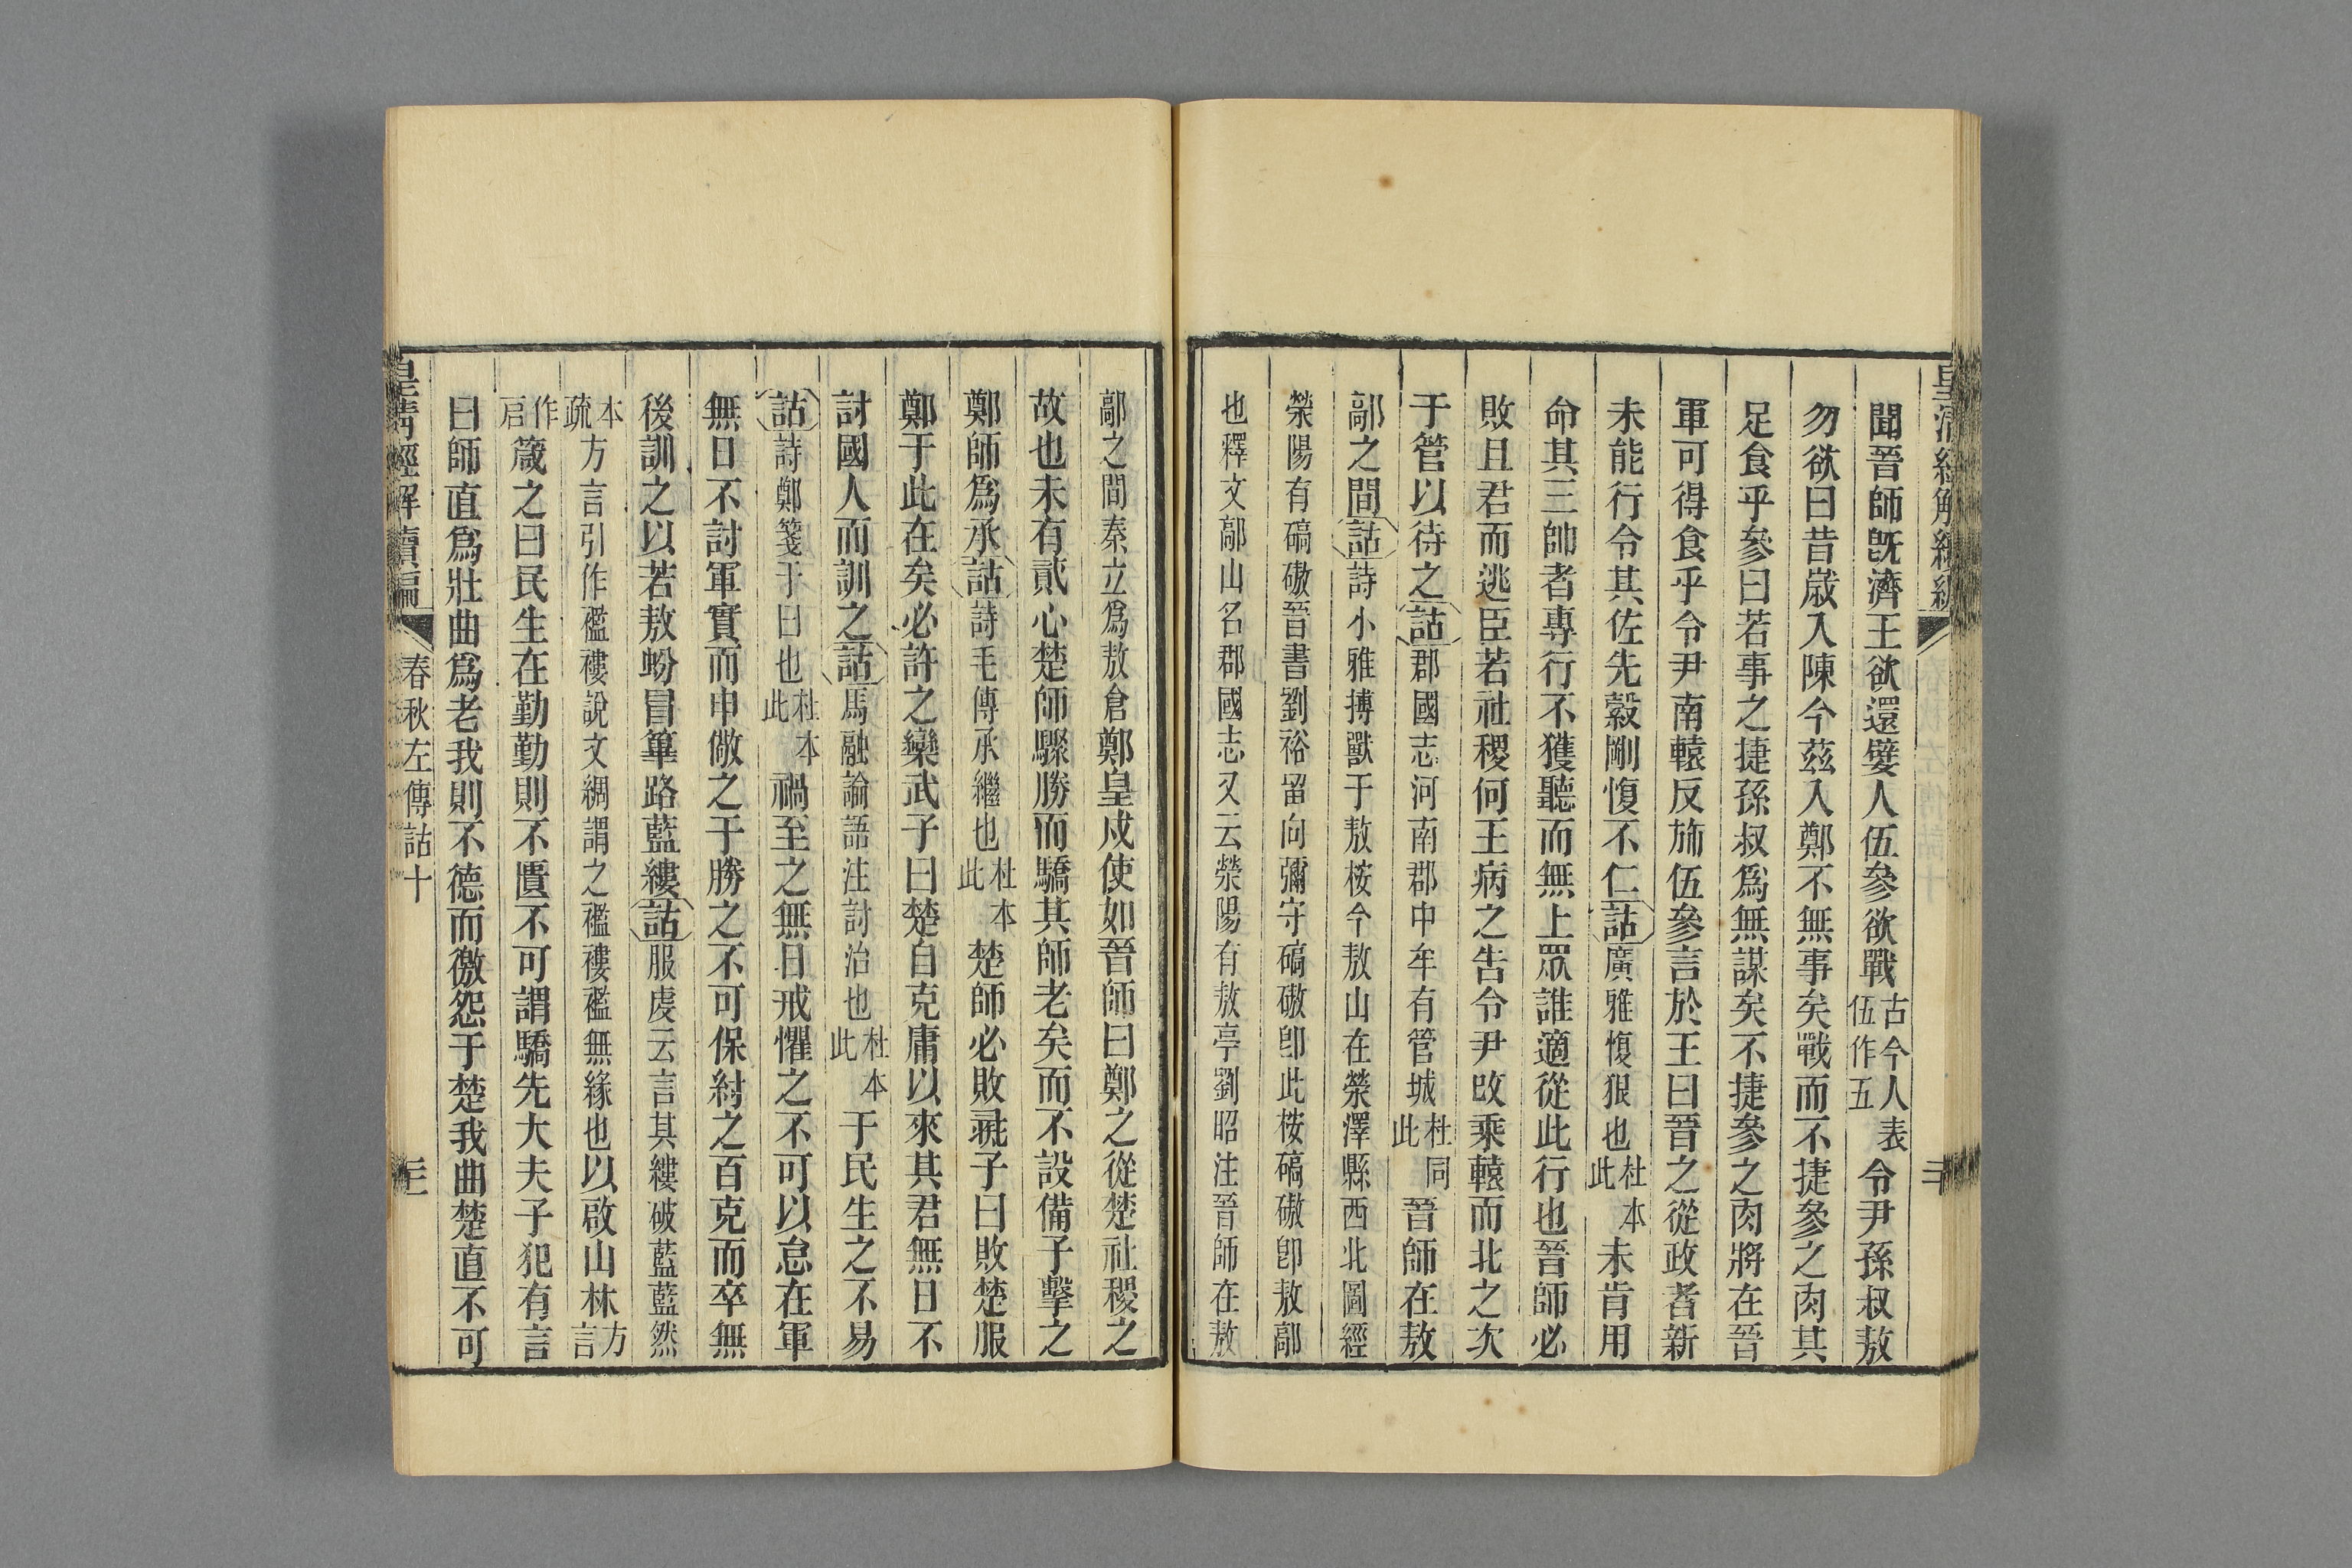 聞晉師旣濟王欲還嬖人伍參欲戰古今人表伍作五令尹孫叔敖
勿欲曰昔歲入陳今茲入鄭不無事矣戰而不捷參之肉其
足食乎參曰若事之捷孫叔爲無謀矣不捷參之肉將在晉
軍可得食乎令尹南轅反斾伍參言於王曰晉之從政者新
未能行令其佐先縠剛愎不仁詁廣雅愎狠也杜本此未肯用
命其三帥者專行不獲聽而無上眾誰適從此行也晉師必
敗且君而逃臣若社稷何王病之告令尹改乘轅而北之次
于管以待之詁郡國志河南郡中牟有管城杜同此晉師在敖
鄗之間詁詩小雅搏獸于敖桉今敖山在滎澤縣西北圖經
滎陽有碻磝晉書劉裕畱向彌守碻磝卽此桉碻磝卽敖鄗
也釋文鄗山名郡國志又云滎陽有敖亭劉昭注晉師在敖
鄗之間秦立爲敖倉鄭皇戍使如晉師曰鄭之從楚社稷之
故也未有貳心楚師驟勝而驕其師老矣而不設備子擊之
鄭師爲承詁詩毛傳承繼也杜本此楚師必敗彘子曰敗楚服
鄭于此在矣必許之欒武子曰楚自克庸以來其君無日不
討國人而訓之詁馬融論語注討治也杜本此于民生之不易
詁詩鄭箋于曰也杜本此禍至之無日戒懼之不可以怠在軍
無日不討軍實而申儆之于勝之不可保紂之百克而卒無
後訓之以若敖蚡冒篳路藍縷詁服虔云言其縷破藍藍然
本疏方言引作襤褸說文裯謂之襤褸襤無緣也以啟山林方言
作启箴之曰民生在勤勤則不匱不可謂驕先大夫子犯有言
曰師直爲壯曲爲老我則不德而徼怨于楚我曲楚直不可
皇清經解續編 春秋左傳詁十